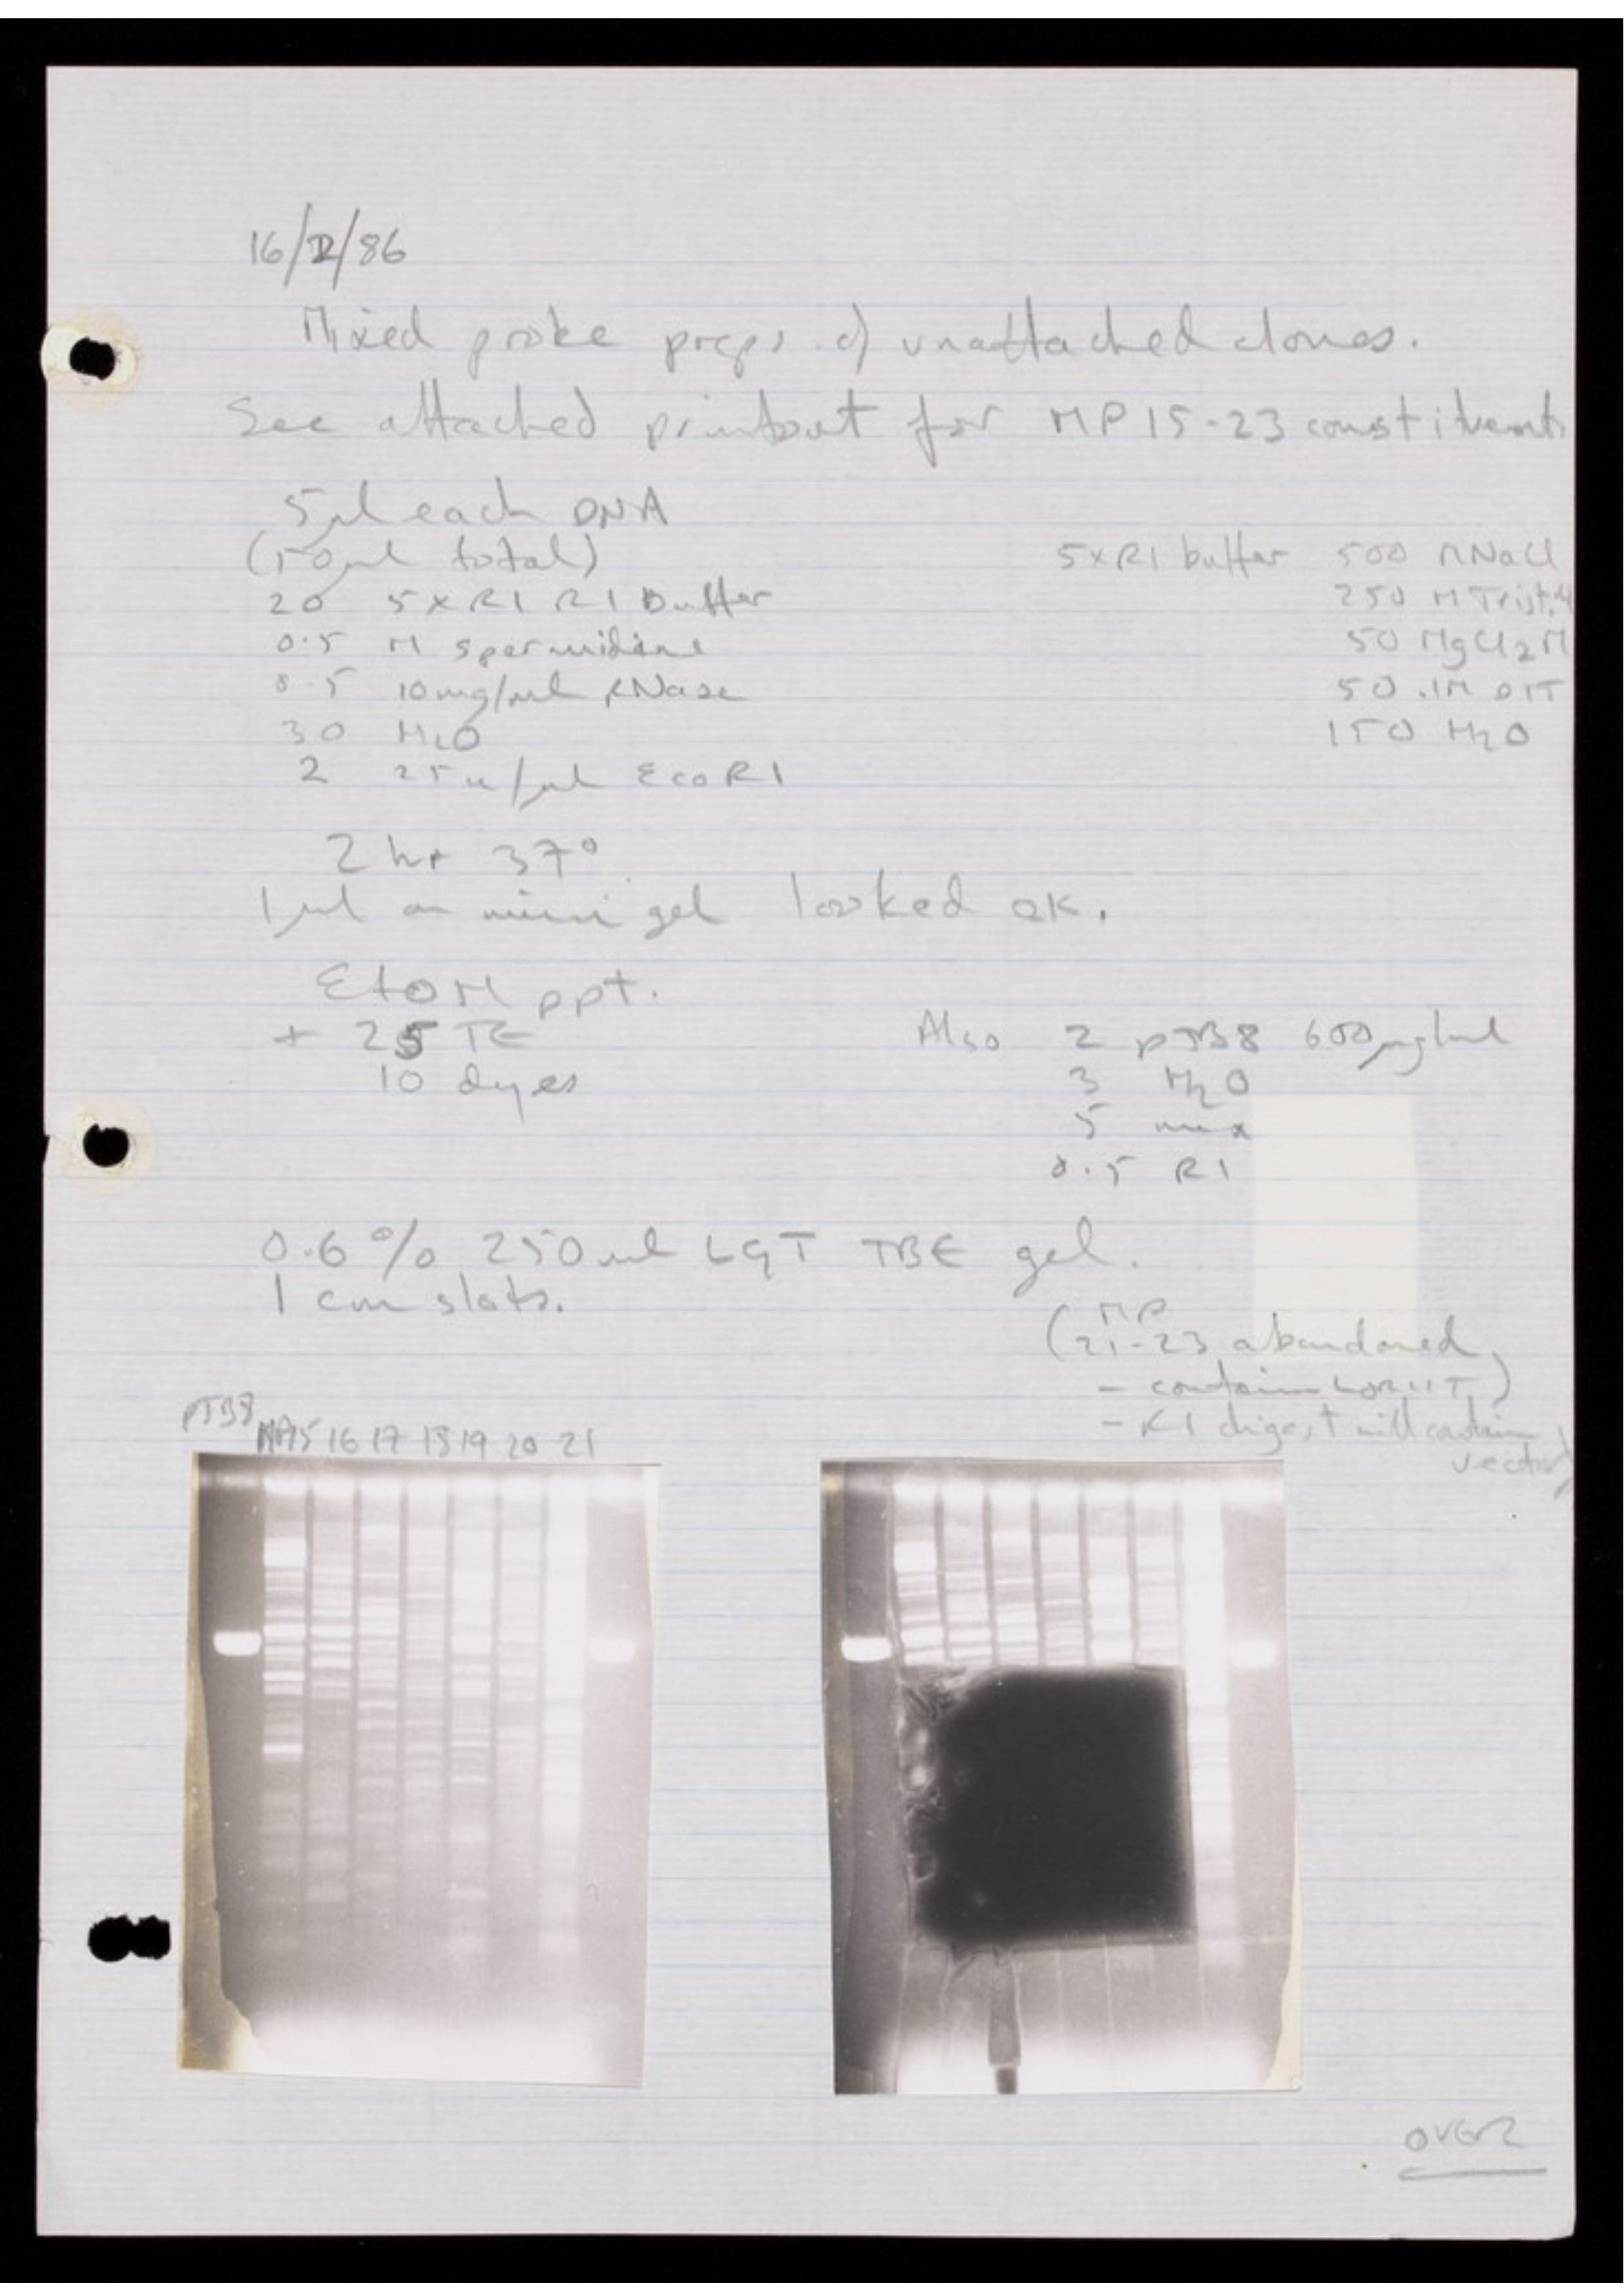 16/2/86
Mixed probe preps of unattached clones.
See attached printout for MP15-23 constituents
5µl each DNA
(50µl total)
20 5xR1 R1 Buffer
0.5 M spermidine
0.5 10mg/ml RNase
30 H2O
2 25u/µl EcoR1
5xR1 buffer 500 MNaCl
250 M Tris7.4
50 MgCl2M
50 .1M DTT
150 H2O
2 hr 37°
1µl on mini gel looked ok.
EtOH ppt.
+ 25 TE
10 dyes
Also 2 pJB8 600µg/ml
3 H2O
5 mix
0.5 R1
0.6% 250ml LGT TBE gel.
1 cm slots.
(MP
21-23 abandoned,
- contain)
- R1 digest will contain
vector)
pJB8 MP15 16 17 18 19 20 21
OVER